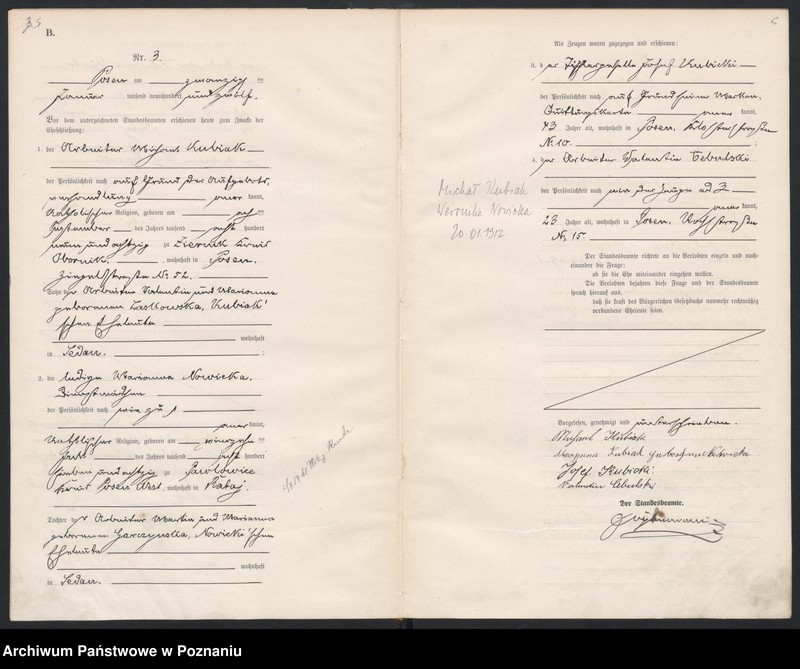 B.
Nr. 3.
Posen am zwanzigsten
Januar tausend neunhundert und zwölf.
Vor dem unterzeichneten Standesbeamten erschienen heute zum Zwecke der
Eheschließung:
1. der Arbeiter Michael Kubiak
der Persönlichkeit nach auf Grund der Aufgebots-
verhandlung anerkannt,
katholischer Religion, geboren am
September des Jahres tausend acht hundert
neun und achtzig zu Kreis
Obornik, wohnhaft in Posen,
straße Nr. 52.
Sohn der Arbeiter Valentin und Marianna
geborenen Kubiak'
schen Eheleute
wohnhaft
in Sedan.
2. die ledige Marianna Nowicka,
Dienstmädchen
der Persönlichkeit nach wie zu 1
anerkannt,
katholischer Religion, geboren am
des Jahres tausend acht hundert
sieben und achtzig zu Pawlowice
Kreis Posen West, wohnhaft in Rataj.
Tochter der Arbeiter Martin und Marianna
geborenen Nowicki'schen
Eheleute
wohnhaft
in Sedan.
Als Zeugen waren zugezogen und erschienen:
3. der Josef Kubicki
der Persönlichkeit nach auf Grund seiner Marken-
Quittungskarte anerkannt,
43 Jahre alt, wohnhaft in Posen,
Nr. 10.
4. der Arbeiter Valentin Cebulski
der Persönlichkeit nach wie der Zeuge ad 3
anerkannt,
23 Jahre alt, wohnhaft in Posen,
Nr. 15.
Michał Kubiak
Weronika Nowicka
20.01.1912
Der Standesbeamte richtete an die Verlobten einzeln und nach-
einander die Frage:
ob sie die Ehe miteinander eingehen wollen.
Die Verlobten bejahten diese Frage und der Standesbeamte
sprach hierauf aus,
daß sie kraft des Bürgerlichen Gesetzbuchs nunmehr rechtmäßig
verbundene Eheleute seien.
Vorgelesen, genehmigt und unterschrieben.
Michael Kubiak
Maryanna Kubiak
Josef Kubicki
Valentin Cebulski
Der Standesbeamte.
Archiwum Państwowe w Poznaniu